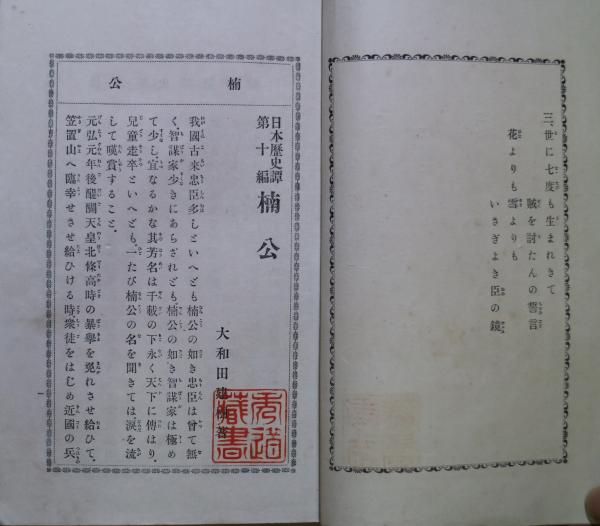 三、世に七度も生まれきて
賊を討たんの誓言
花よりも雪よりも
いさぎよき臣の鏡
楠公
日本歴史譚
第十編
楠公
大和田建樹著
我國古來忠臣多しといへども楠公の如き忠臣は曾て無
く、智謀家少きにあらざれども楠公の如き智謀家は極め
て少し、宜なるかな其芳名は千載の下永く天下に傳はり、
兒童走卒といへども、一たび楠公の名を聞きては淚を流
して嘆賞すること。
元弘元年後醍醐天皇北條高時の暴擧を免れさせ給ひて、
笠置山へ臨幸せさせ給ひける時衆徒をはじめ近國の兵
一
秀道
藏書